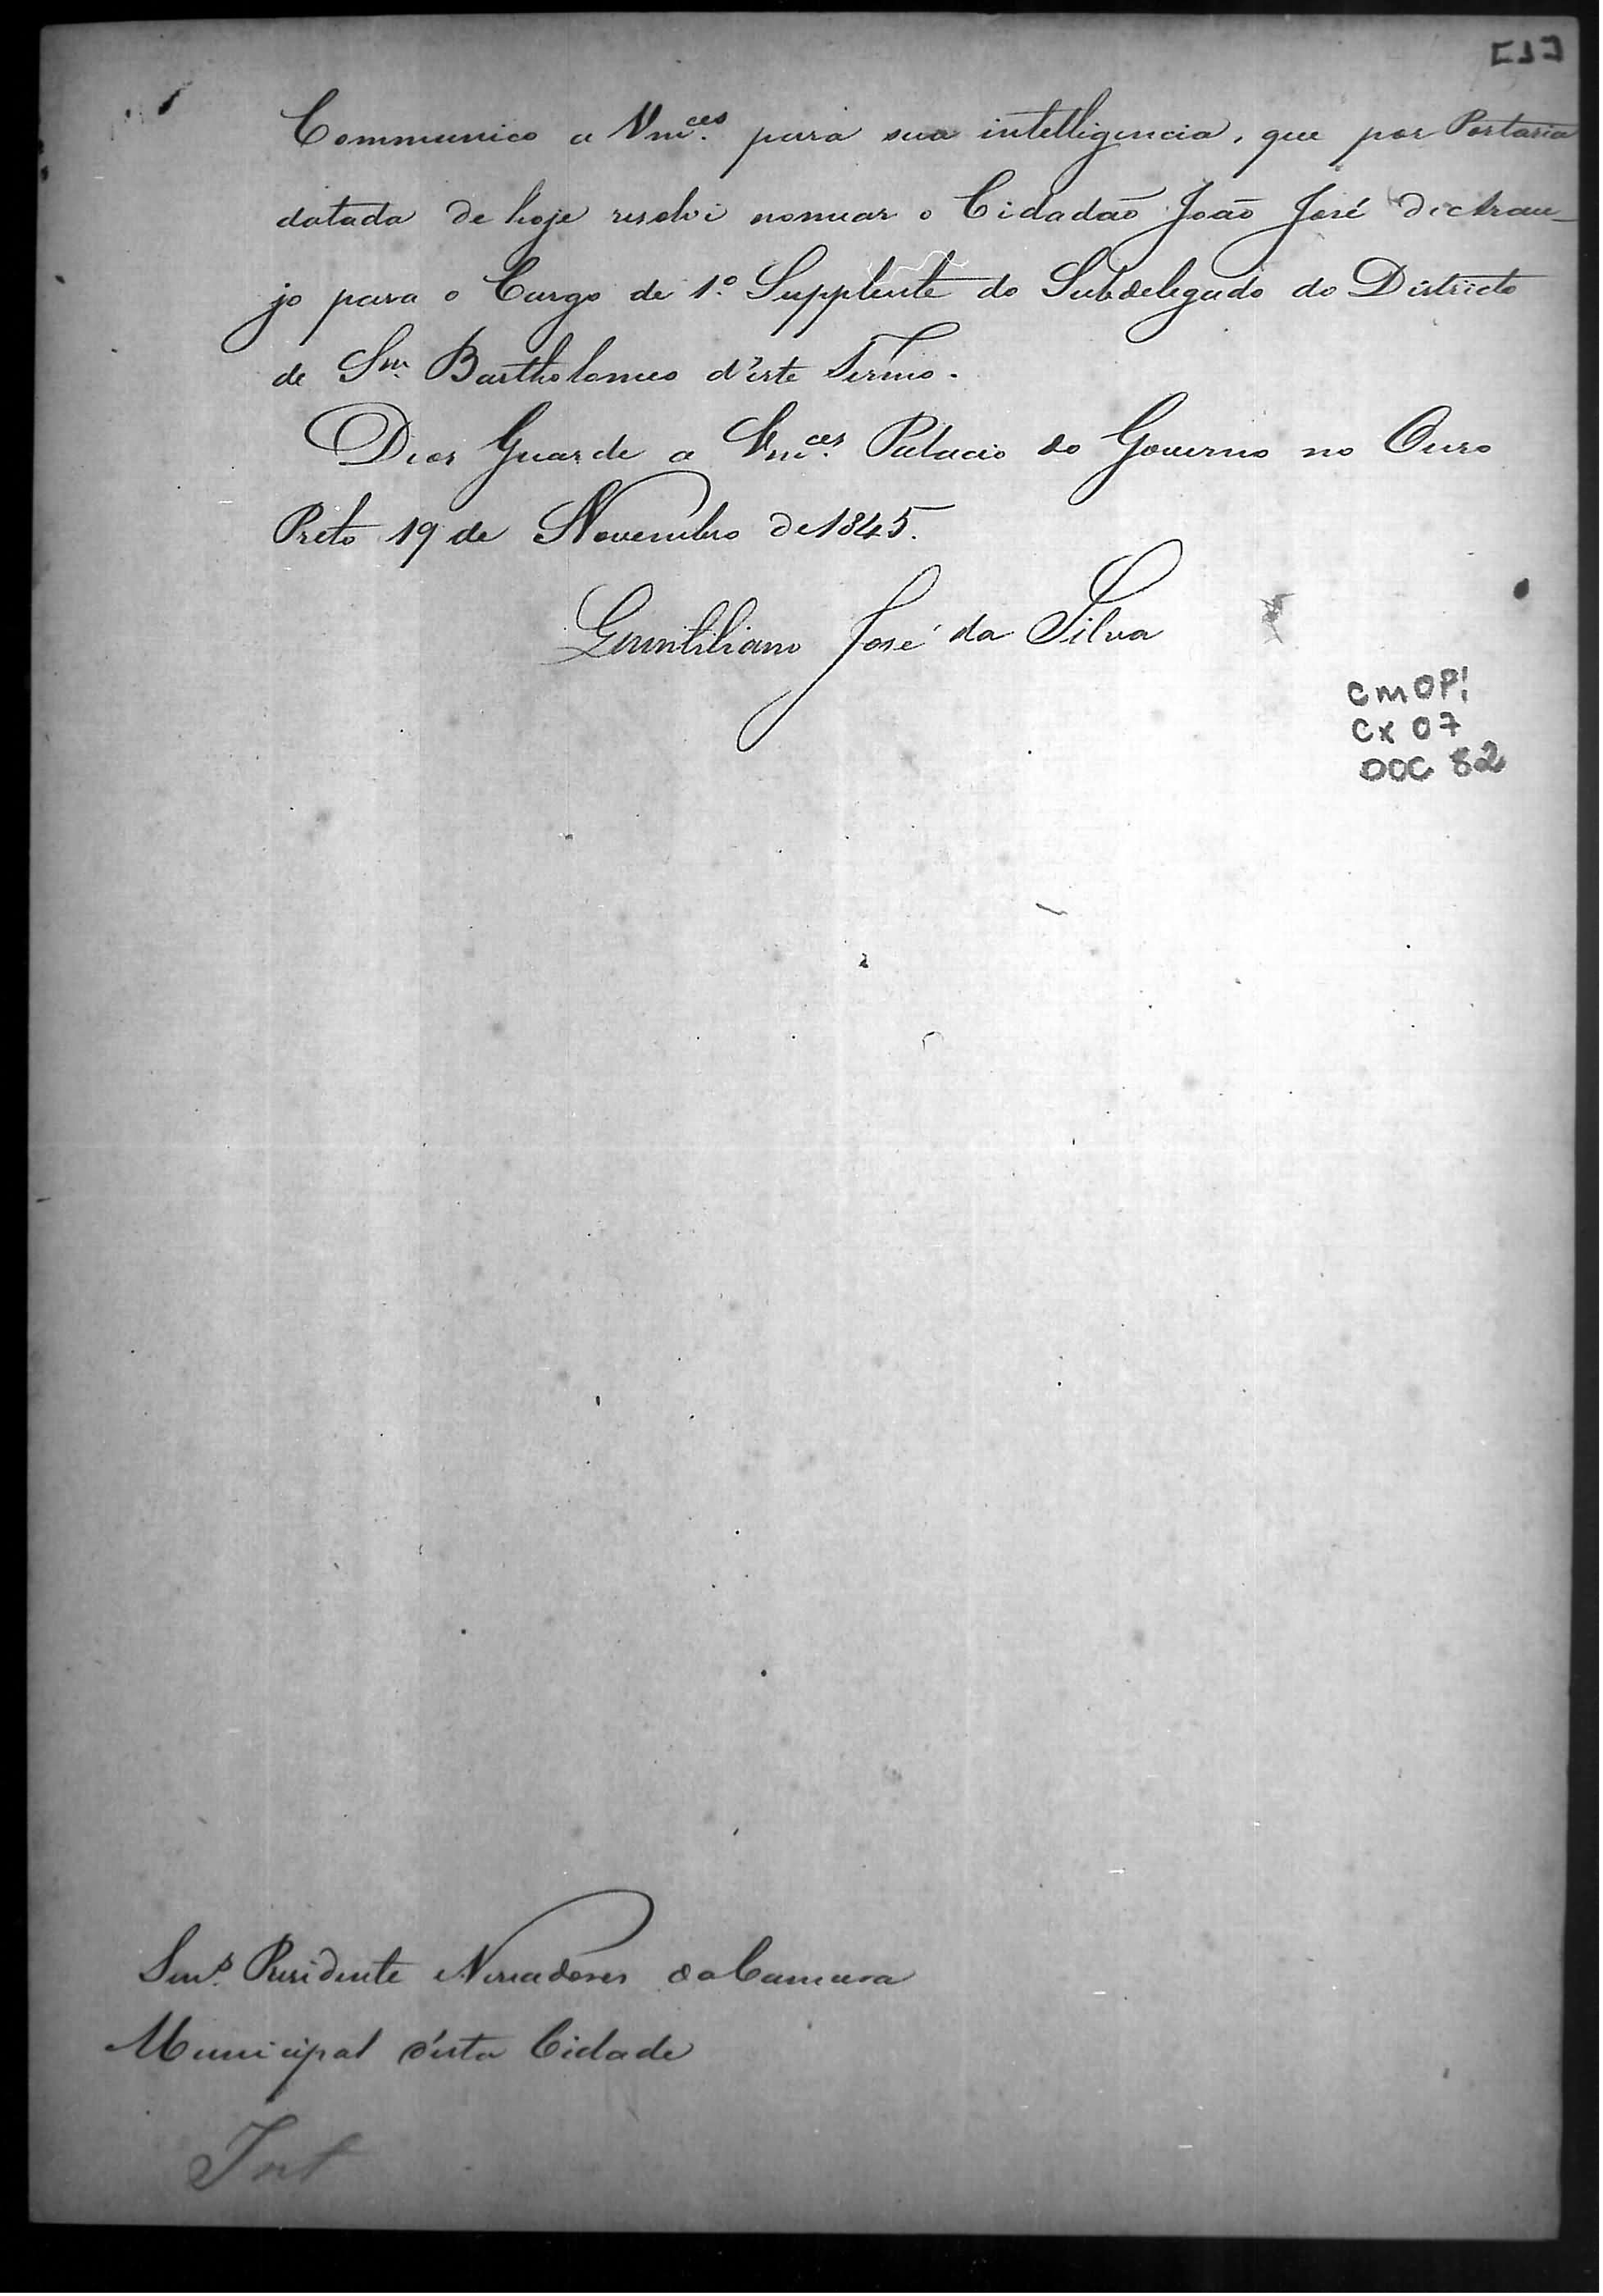 [1]
Communico a Vm.ces para sua intelligencia, que por Portaria
datada de hoje resolvi nomear o Cidadão João José de Arau-
jo para o Cargo de 1.º Supplente do Subdelegado do Districto
de Sm. Bartholomeo d'este Termo.
Deos Guarde a Vm.ces Palacio do Governo no Ouro
Preto 19 de Novembro de 1845.
Quintiliano José da Silva
CMOP!
CX 07
DOC 82
Snr.s Presidente e Vereadores da Camara
Municipal d'esta Cidade